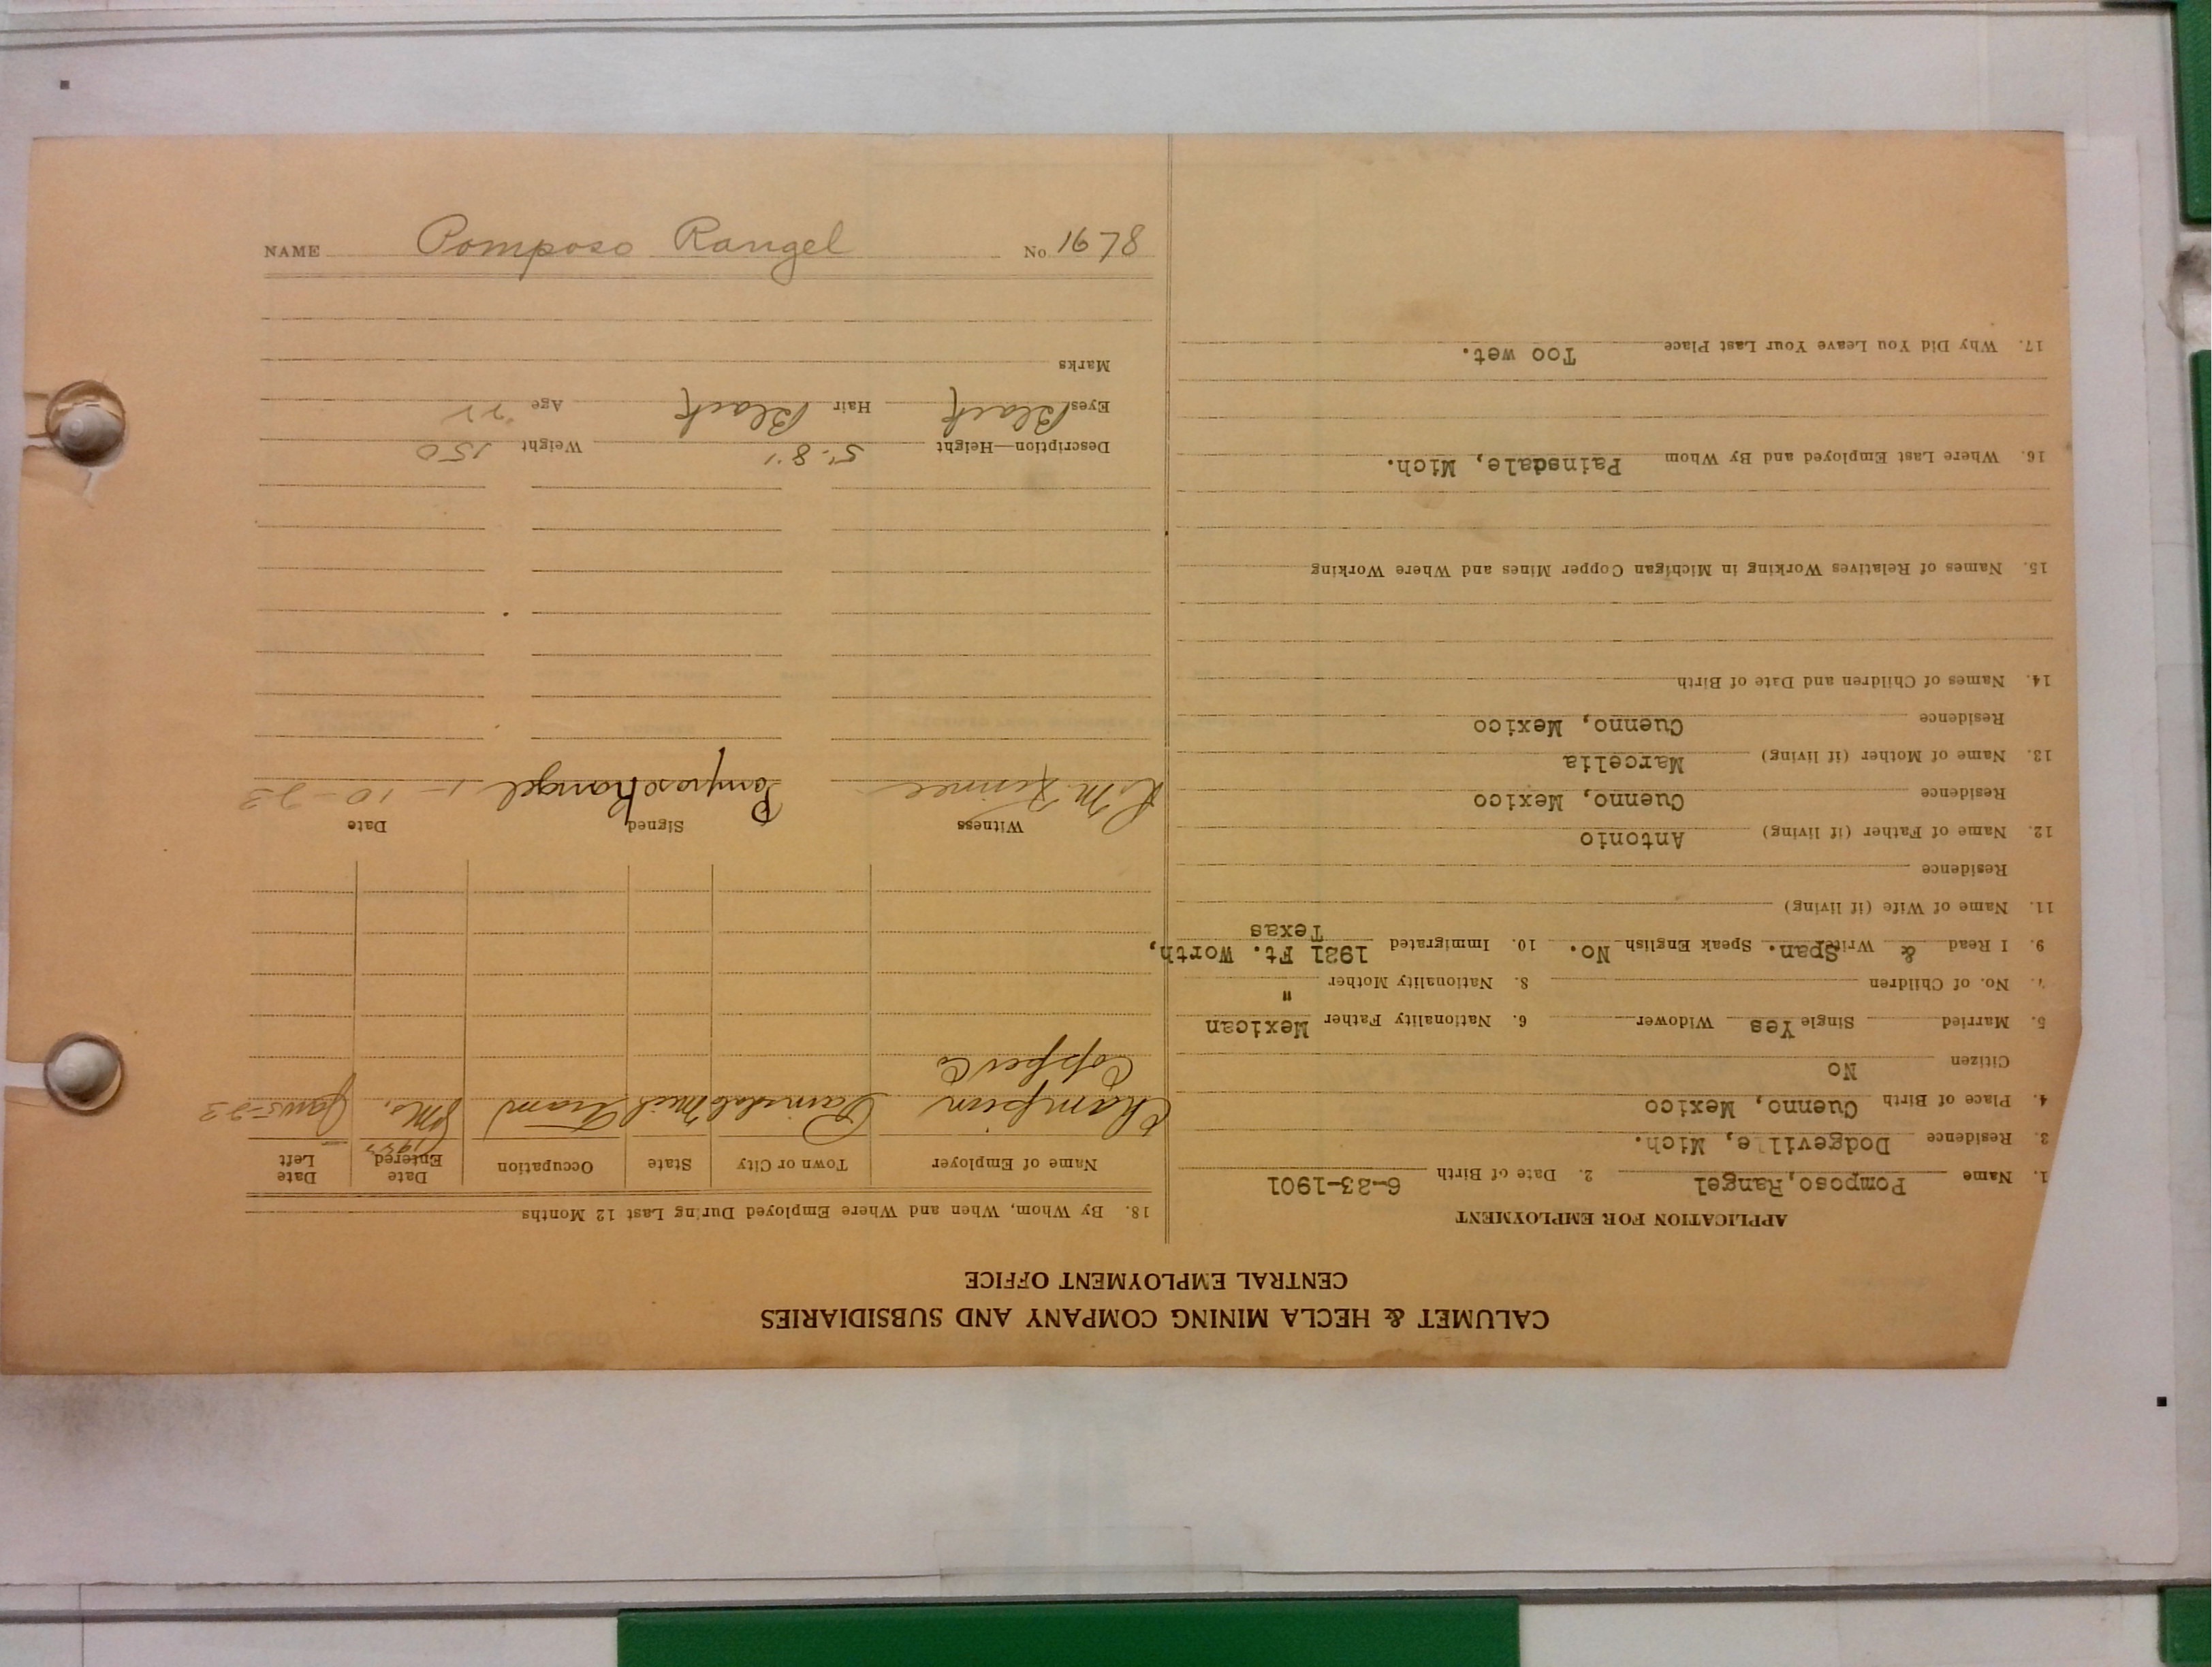 CALUMET & HECLA MINING COMPANY AND SUBSIDIARIES
CENTRAL EMPLOYMENT OFFICE
APPLICATION FOR EMPLOYMENT
1. Name Pomposo, Rangel 2. Date of Birth 6-23-1901
3. Residence Dodgeville, Mich.
4. Place of Birth Cuenno, Mexico
Citizen No
5. Married Single Yes Widower 6. Nationality Father Mexican
7. No. of Children 8. Nationality Mother "
9. I Read & Write Span. Speak English No. 10. Immigrated 1921 Ft. Worth,
Texas
11. Name of Wife (if living)
Residence
12. Name of Father (if living) Antonio
Residence Cuenno, Mexico
13. Name of Mother (if living) Marcelia
Residence Cuenno, Mexico
14. Names of Children and Date of Birth
15. Names of Relatives Working in Michigan Copper Mines and Where Working
16. Where Last Employed and By Whom Painsdale, Mich.
17. Why Did You Leave Your Last Place Too wet.
18. By Whom, When and Where Employed During Last 12 Months
Name of Employer Town or City State Occupation Date Entered Date Left
Champion Painsdale Mich Tram Jan 5-23
Copper Co
Witness Signed Date
Pomposo Rangel 1-10-23
Description—Height 5'-8" Weight 150
Eyes Black Hair Black Age
Marks
NAME Pomposo Rangel No 1678